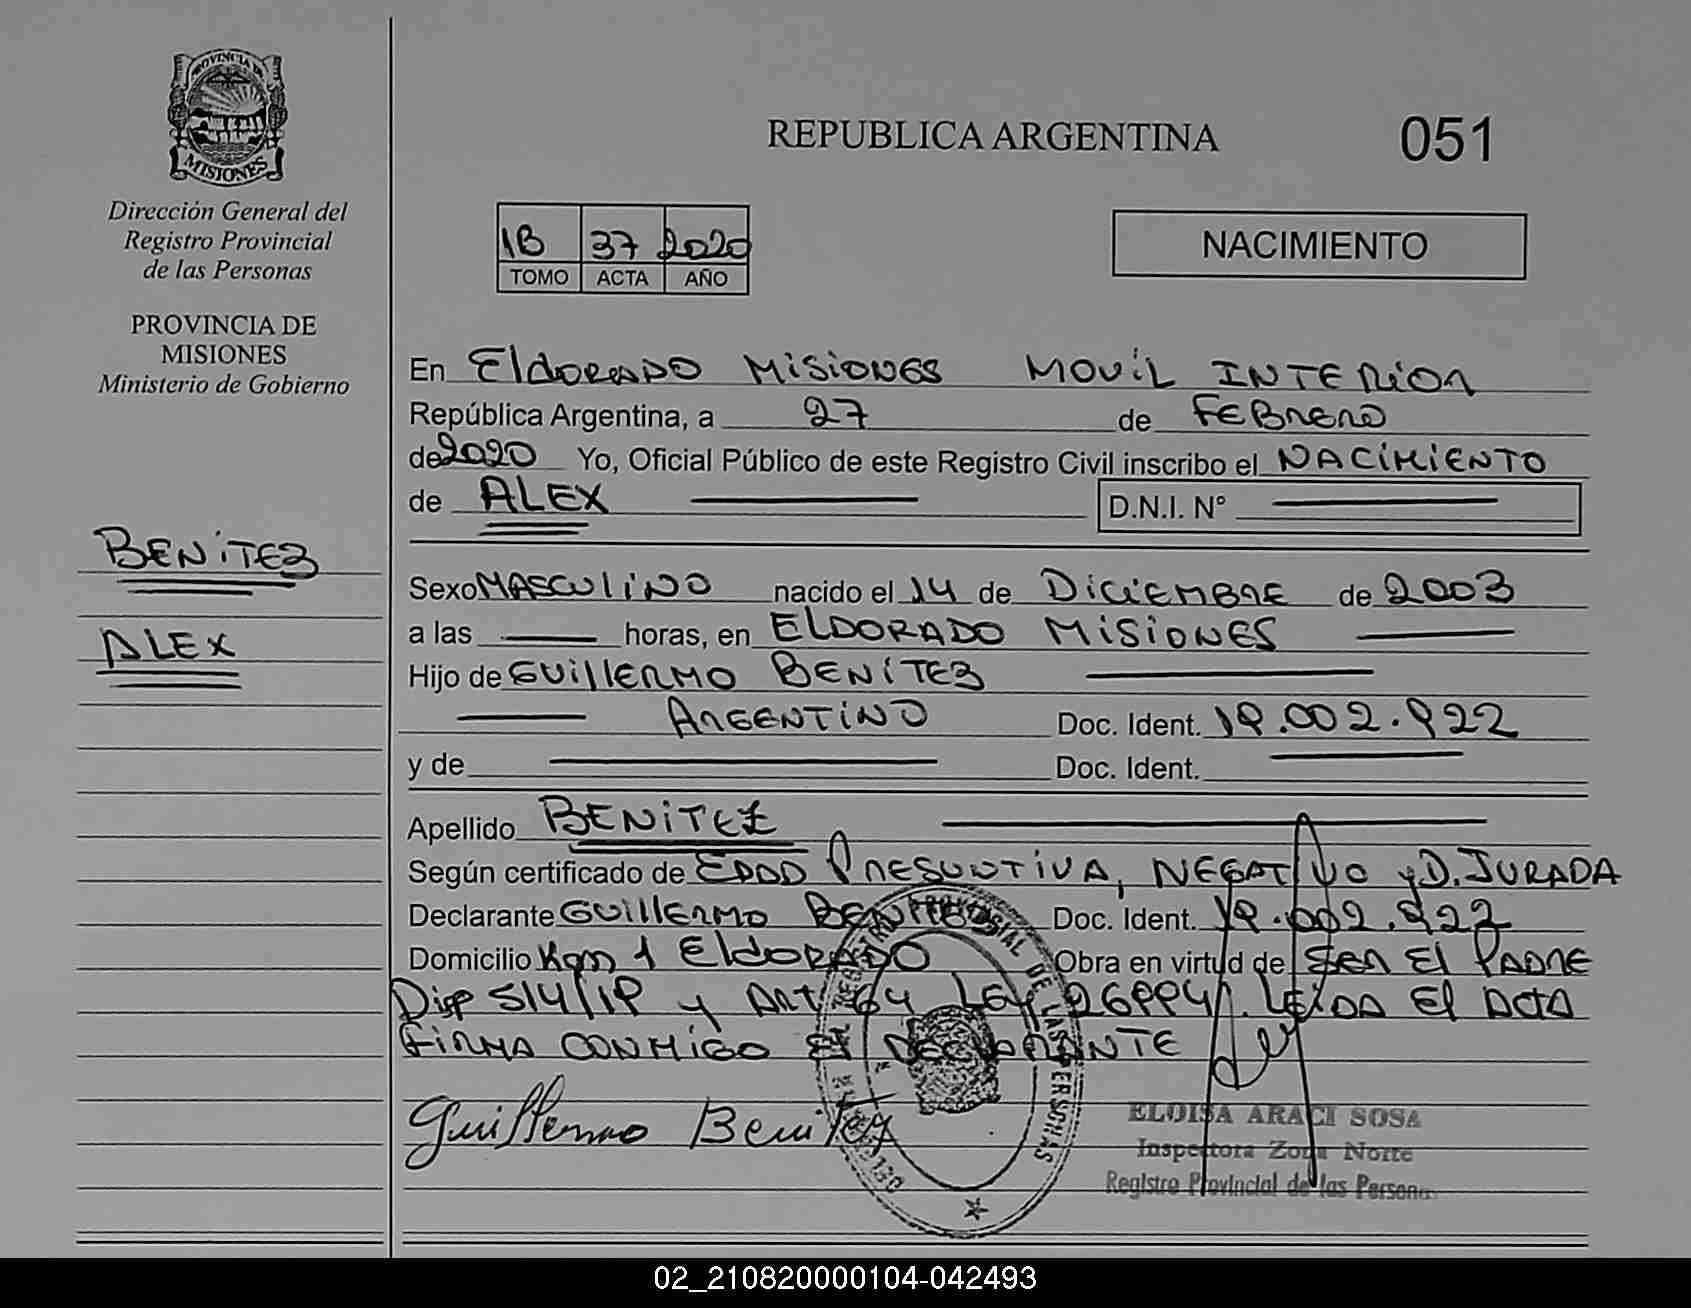 PROVINCIA DE
MISIONES
Dirección General del
Registro Provincial
de las Personas
PROVINCIA DE
MISIONES
Ministerio de Gobierno
BENITEZ
ALEX
REPUBLICA ARGENTINA 051
1B 37 2020
TOMO ACTA AÑO
NACIMIENTO
En ElDORADO MISIONES MOVIL INTERIOR
República Argentina, a 27 de FEBRERO
de 2020 Yo, Oficial Público de este Registro Civil inscribo el NACIMIENTO
de ALEX D.N.I. N°
Sexo MASCULINO nacido el 14 de DICIEMBRE de 2003
a las horas, en ELDORADO MISIONES
Hijo de GUILLERMO BENÍTEZ
ARGENTINO Doc. Ident. 19.002.922
y de Doc. Ident.
Apellido BENITEZ
Según certificado de EDAD PRESUNTIVA, NEGATIVO y D. JURADA
Declarante GUILLERMO BENITEZ Doc. Ident. 19.002.922
Domicilio Km 1 ElDORADO Obra en virtud de SER El PADRE
Disp 514/19 y ART 64 LEY 26994. LEIDA El ACTA
FIRMA CONMIGO El DECLARANTE
Guillermo Benitez
REGISTRO PROVINCIAL DE LAS PERSONAS
ELOISA ARACI SOSA
Inspectora Zona Norte
Registro Provincial de las Personas
02_210820000104-042493